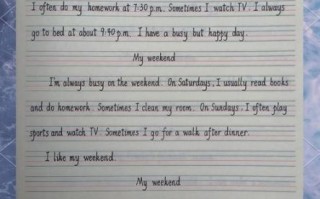 I often do my homework at 7:30 p.m. Sometimes I watch TV. I always
go to bed at about 9:40 p.m. I have a busy but happy day.
My weekend
I'm always busy on the weekend. On Saturdays, I usually read books
and do homework. Sometimes I clean my room. On Sundays, I often play
sports and watch TV. Sometimes I go for a walk after dinner.
I like my weekend.
My weekend